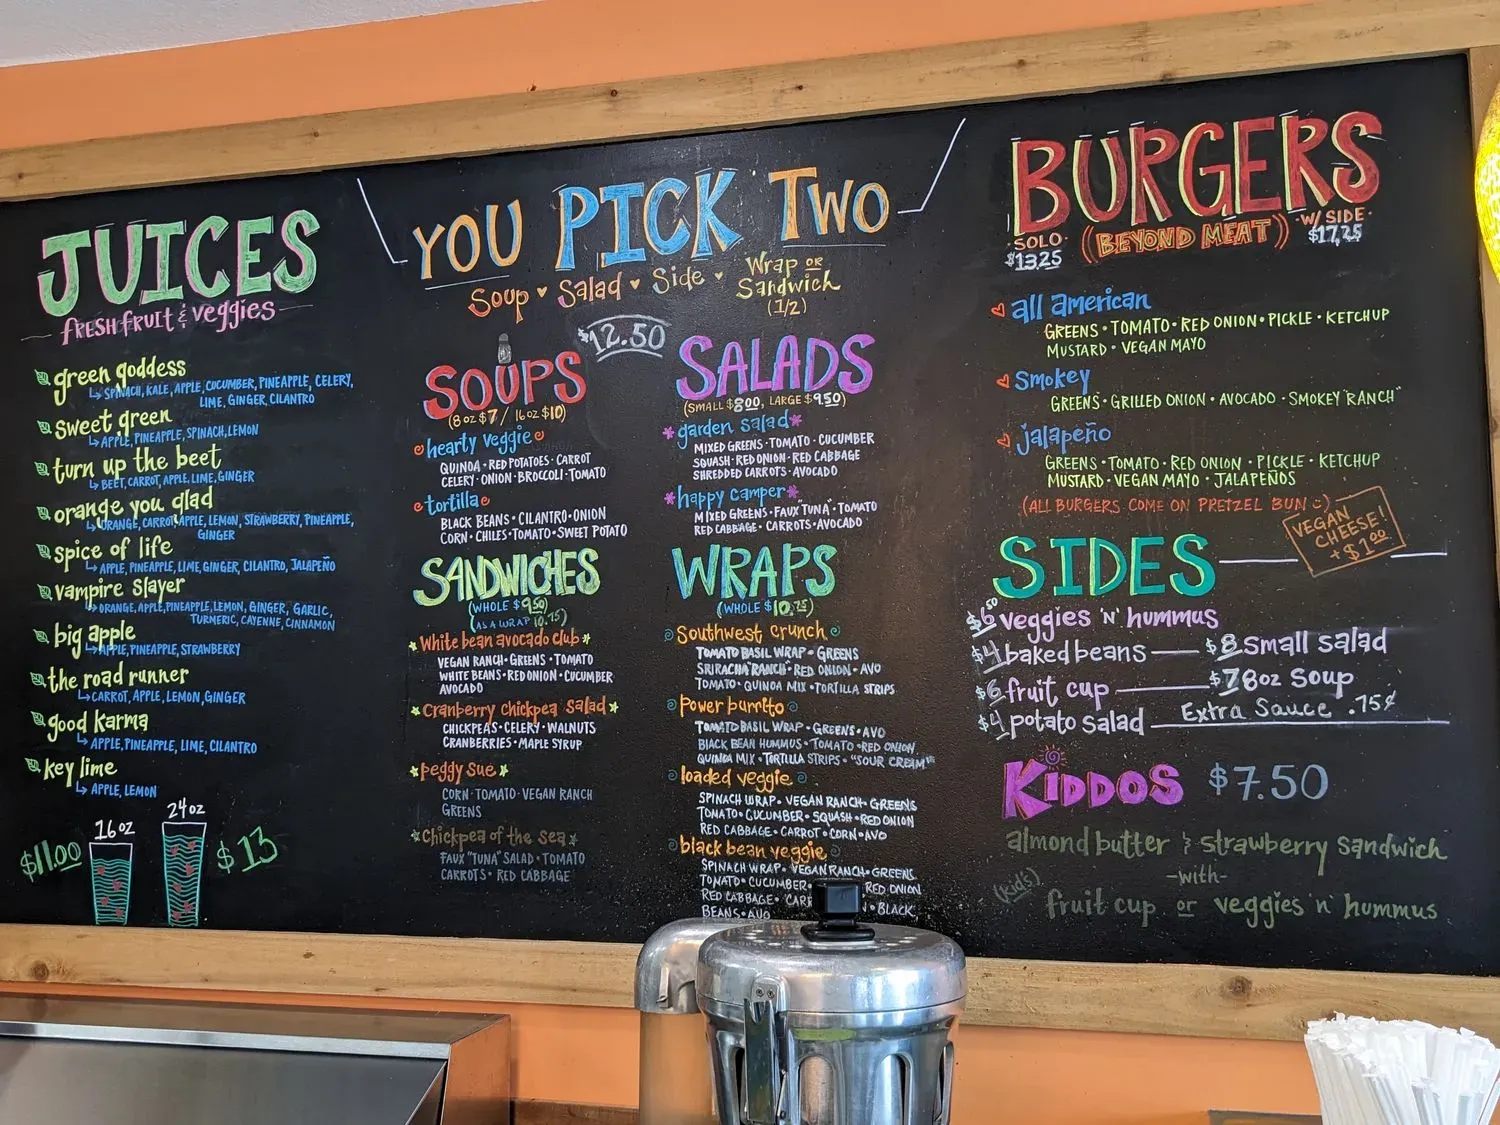 JUICES
fresh fruit & veggies
green goddess
SPINACH, KALE, APPLE, CUCUMBER, PINEAPPLE, CELERY,
LIME, GINGER, CILANTRO
sweet green
APPLE, PINEAPPLE, SPINACH, LEMON
turn up the beet
BEET, CARROT, APPLE, LIME, GINGER
orange you glad
ORANGE, CARROT, APPLE, LEMON, STRAWBERRY, PINEAPPLE,
GINGER
spice of life
APPLE, PINEAPPLE, LIME, GINGER, CILANTRO, JALAPEÑO
vampire slayer
ORANGE, APPLE, PINEAPPLE, LEMON, GINGER, GARLIC,
TURMERIC, CAYENNE, CINNAMON
big apple
APPLE, PINEAPPLE, STRAWBERRY
the road runner
CARROT, APPLE, LEMON, GINGER
good karma
APPLE, PINEAPPLE, LIME, CILANTRO
key lime
APPLE, LEMON
16 oz
24 oz
$11.00
$13
YOU PICK TWO
Soup ♥ Salad ♥ Side ♥ Wrap or
Sandwich
(1/2)
$12.50
SOUPS
(8 oz $7 / 16 oz $10)
hearty veggie
QUINOA • RED POTATOES • CARROT
CELERY • ONION • BROCCOLI • TOMATO
tortilla
BLACK BEANS • CILANTRO • ONION
CORN • CHILES • TOMATO • SWEET POTATO
SANDWICHES
(WHOLE $9.50)
(AS A WRAP 10.75)
White bean avocado club
VEGAN RANCH • GREENS • TOMATO
WHITE BEANS • RED ONION • CUCUMBER
AVOCADO
Cranberry chickpea salad
CHICKPEAS • CELERY • WALNUTS
CRANBERRIES • MAPLE SYRUP
peggy sue
CORN • TOMATO • VEGAN RANCH
GREENS
Chickpea of the sea
FAUX "TUNA" SALAD • TOMATO
CARROTS • RED CABBAGE
SALADS
(SMALL $8.00, LARGE $9.50)
garden salad
MIXED GREENS • TOMATO • CUCUMBER
SQUASH • RED ONION • RED CABBAGE
SHREDDED CARROTS • AVOCADO
happy camper
MIXED GREENS • FAUX "TUNA" • TOMATO
RED CABBAGE • CARROTS • AVOCADO
WRAPS
(WHOLE $10.75)
Southwest crunch
TOMATO BASIL WRAP • GREENS
SRIRACHA "RANCH" • RED ONION • AVO
TOMATO • QUINOA MIX • TORTILLA STRIPS
power burrito
TOMATO BASIL WRAP • GREENS • AVO
BLACK BEAN HUMMUS • TOMATO • RED ONION
QUINOA MIX • TORTILLA STRIPS • "SOUR CREAM"
loaded veggie
SPINACH WRAP • VEGAN RANCH • GREENS
TOMATO • CUCUMBER • SQUASH • RED ONION
RED CABBAGE • CARROT • CORN • AVO
black bean veggie
SPINACH WRAP • VEGAN RANCH • GREENS
TOMATO • CUCUMBER • RED ONION
RED CABBAGE • • BLACK
BEANS • AVO
BURGERS
SOLO
$13.25
((BEYOND MEAT))
W/ SIDE
$17.25
all american
GREENS • TOMATO • RED ONION • PICKLE • KETCHUP
MUSTARD • VEGAN MAYO
Smokey
GREENS • GRILLED ONION • AVOCADO • SMOKEY "RANCH"
jalapeño
GREENS • TOMATO • RED ONION • PICKLE • KETCHUP
MUSTARD • VEGAN MAYO • JALAPEÑOS
(ALL BURGERS COME ON PRETZEL BUN :)
VEGAN
CHEESE!
+ $1.00
SIDES
$6.50 veggies 'n' hummus
$4 baked beans
$8 small salad
$6 fruit cup
$7 8oz Soup
$4 potato salad
Extra Sauce .75¢
KIDDOS $7.50
almond butter & strawberry sandwich
-with-
(kid's) fruit cup or veggies n hummus